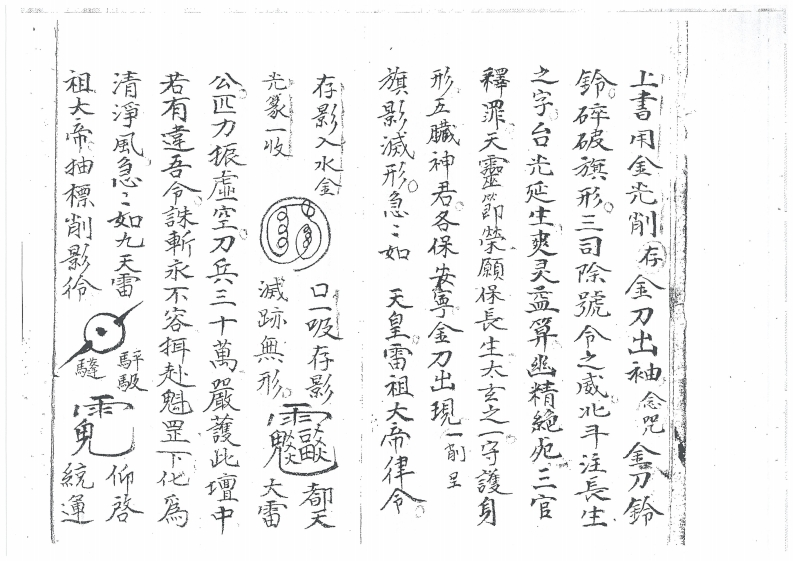 上書用金光削存金刀出袖念咒金刀鈴
鈴碎破旗形三司除號令之威北斗注長生
之字台光延生爽灵益算幽精絶死三官
釋罪天靈節榮願保長生太玄之一字護身
形五臟神君各保安寧金刀出現一削呈
旗影滅形急〻如 天皇雷祖大帝律令
存影入水金 口一吸存影 都天
光篆一收 滅跡無形 大雷
公匹力振虛空刀兵三十萬嚴護此壇中
若有違吾令誅斬永不容拜赴魁罡下化為
清淨風急〻如九天雷 仰啓
祖大帝抽標削影符 統運